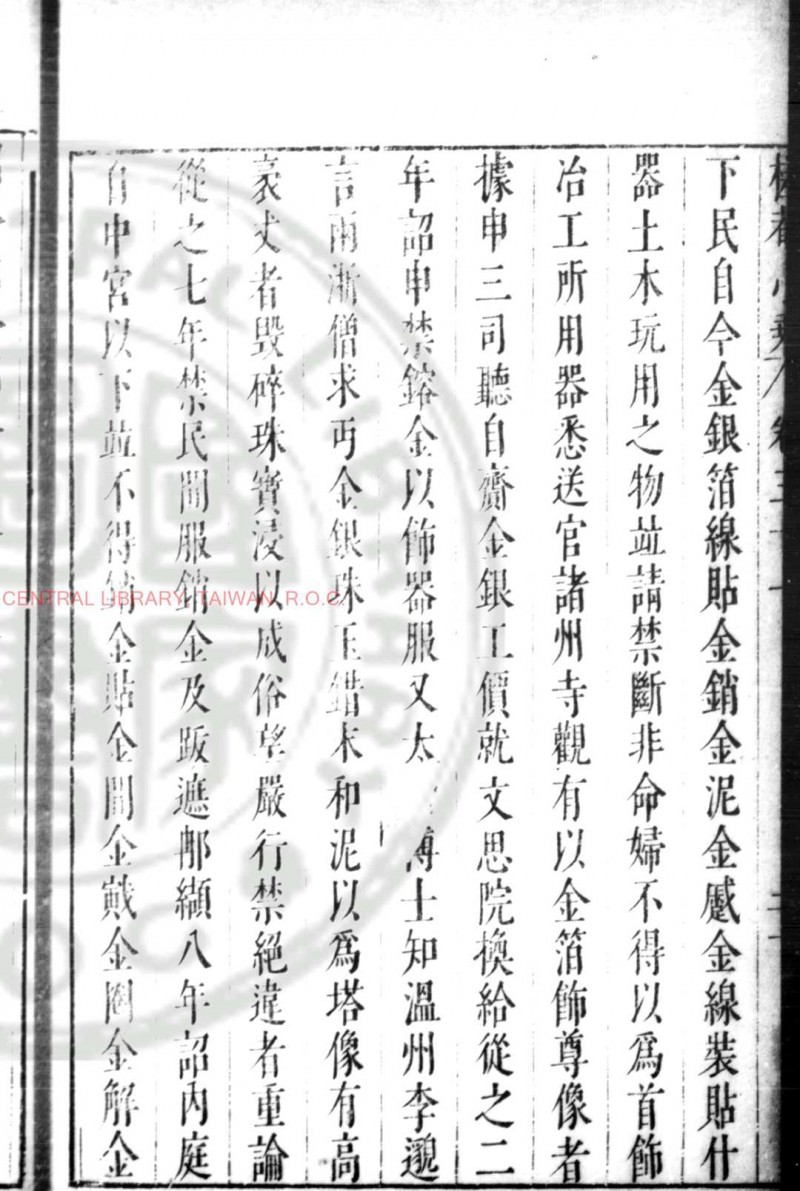 下民自今金銀箔線貼金銷金泥金蹙金線裝貼什
器土木玩用之物竝請禁斷非命婦不得以爲首飾
冶工所用器悉送官諸州寺觀有以金箔飾尊像者
據申三司聽自齎金銀工價就文思院換給從之二
年詔申禁鎔金以飾器服又太博士知溫州李邈
言兩浙僧求丐金銀珠玉錯末和泥以爲塔像有高
袤丈者毀碎珠寶浸以成俗望嚴行禁絕違者重論
從之七年禁民間服銷金及跋遮那纈八年詔內庭
自中宮以下竝不得銷金貼金間金戭金圈金解金
CENTRAL LIBRARY, TAIWAN, R.O.C.